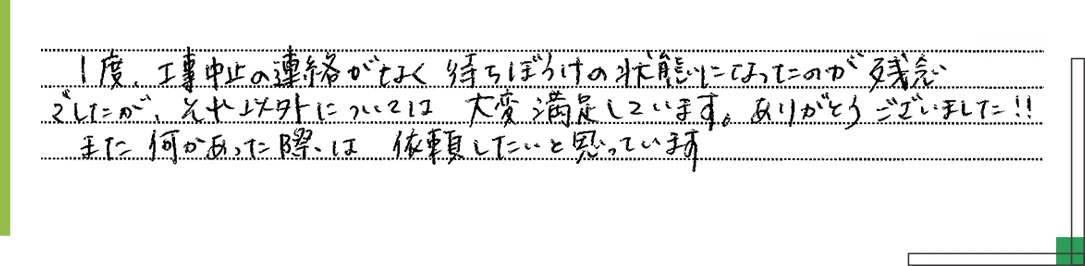 1度、工事中止の連絡がなく 待ちぼうけの状態になったのが 残念
でしたが、それ以外については 大変満足しています。ありがとうございました!!
また何かあった際は 依頼したいと思っています